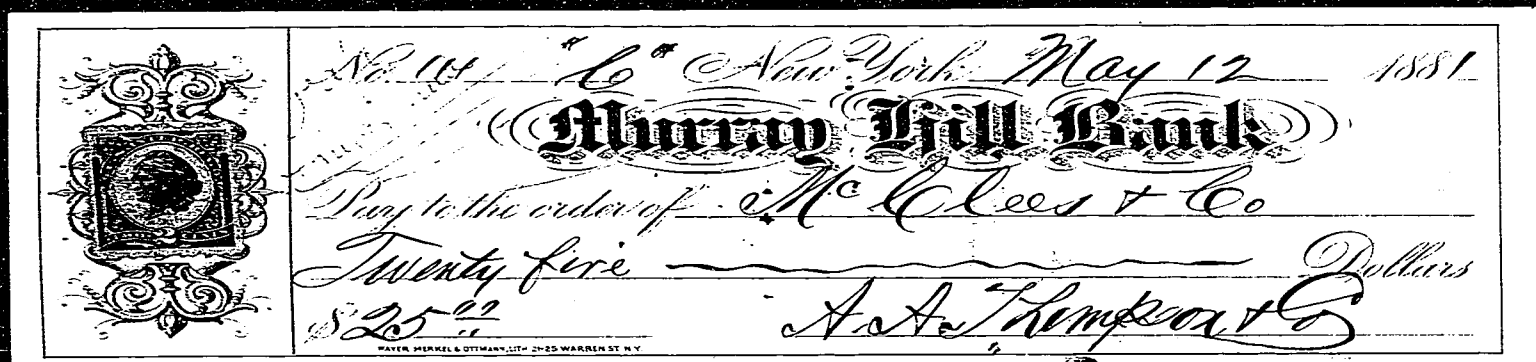 No. "C" New York May 12 1881
Murray Hill Bank
Pay to the order of McClees & Co
Twenty five Dollars
$25 00 A. A. Thompson & Co
MAYER MERKEL & OTTMANN, LITH 21-25 WARREN ST N.Y.